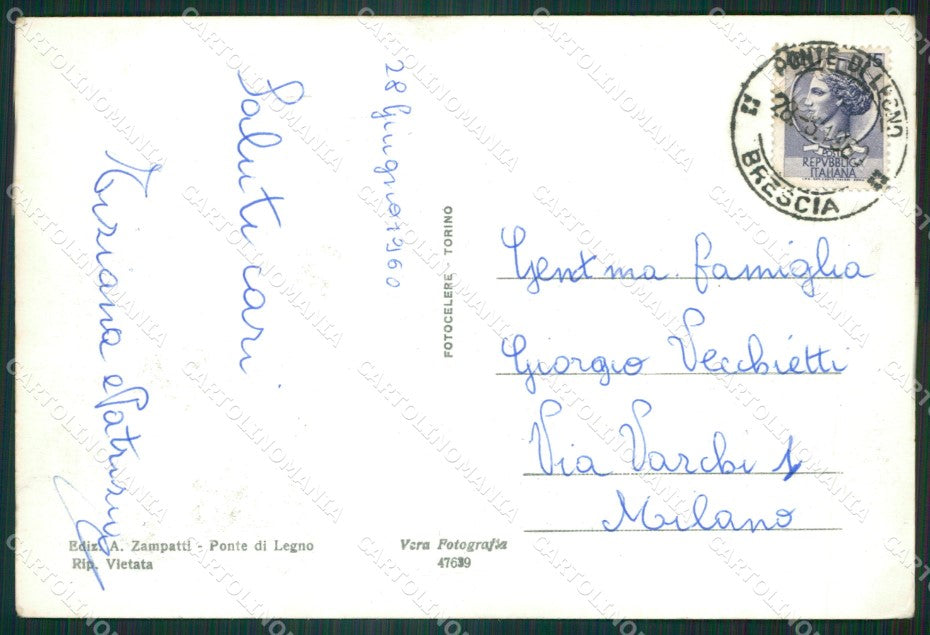 28 Giugno 1960
Saluti cari
Tiziana e Patrizio
FOTOCELERE - TORINO
PONTE DI LEGNO
BRESCIA
15
POSTE
REPVBBLICA
ITALIANA
Gent ma famiglia
Giorgio Vecchietti
Via Varchi 1
Milano
Ediz. A. Zampatti - Ponte di Legno
Rip. Vietata
Vera Fotografia
47639
CARTOLINOMANIA